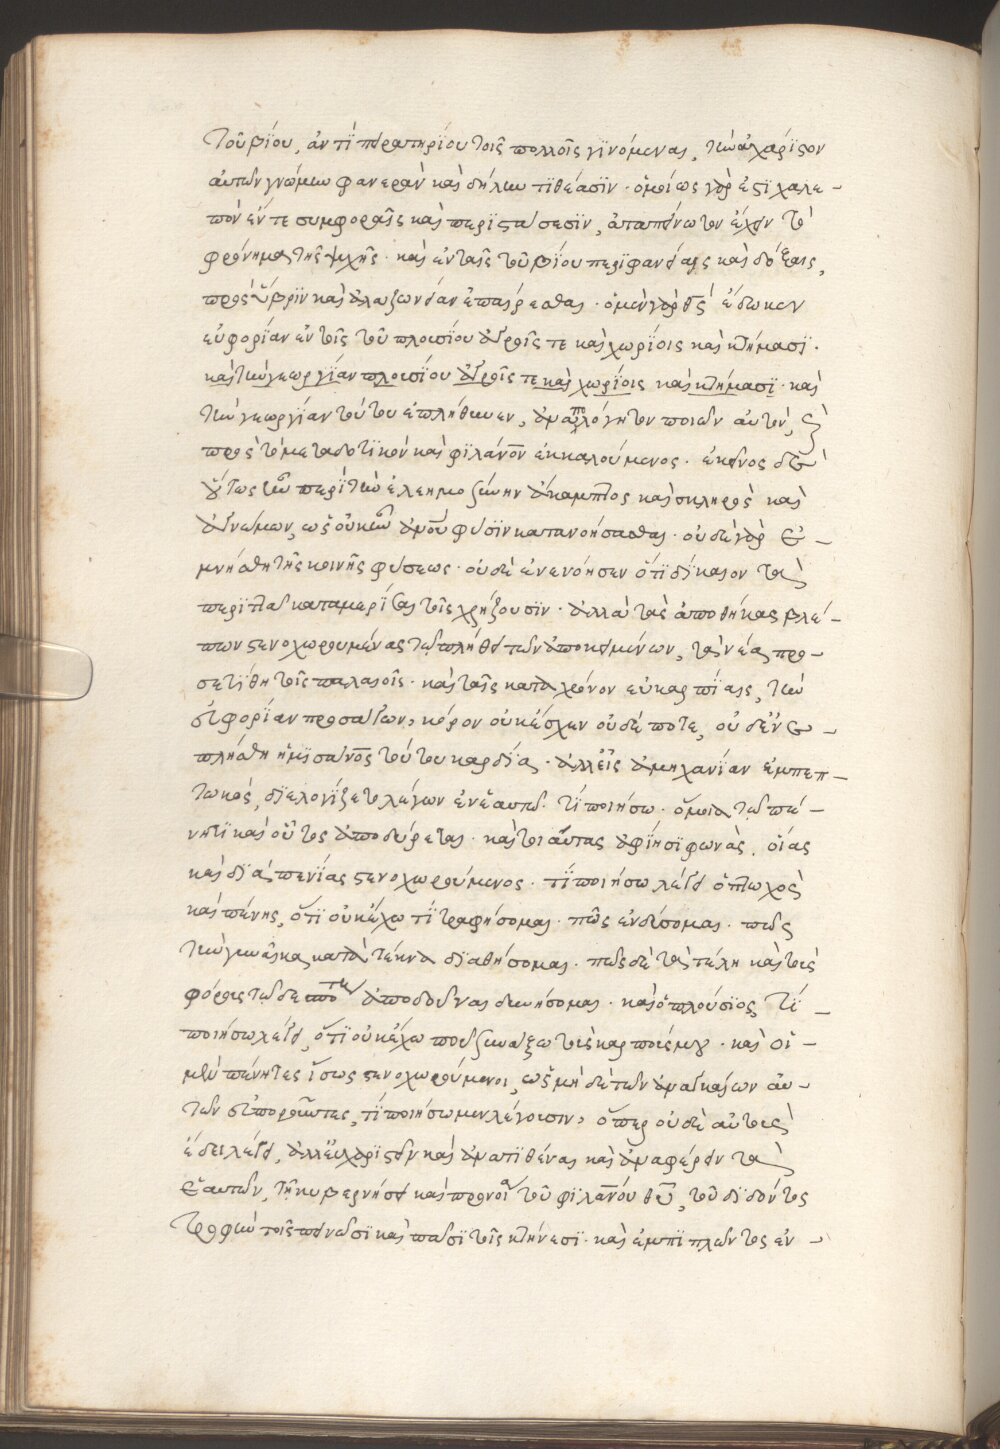 τοῦ βίου, ἀντὶ πειρατηρίου τοῖς πολλοῖς γινόμεναι, τὴν ἀχάριστον
αὐτῶν γνώμην φανερὰν καὶ δήλην τιθέασιν. ὁμοίως γὰρ ἐστὶ χαλε-
πὸν ἔν τε συμφοραῖς καὶ περιστάσεσιν, ἀταπείνωτον ἔχειν τὸ
φρόνημα τῆς ψυχῆς. καὶ ἐν ταῖς τοῦ βίου περιφανείαις καὶ δόξαις,
πρὸς ὕβριν καὶ ἀλαζωνείαν ἐπαίρεσθαι. ὁ μὲν γὰρ θς ἔδωκεν
εὐφορίαν ἐν τοῖς τοῦ πλουσίου ἀγροῖς τε καὶ χωρίοις καὶ κτήμασι.
καὶ τὴν γεωργίαν πλουσίου ἀγροῖς τε καὶ χωρίοις καὶ κτήμασι. καὶ
τὴν γεωργίαν τούτου ἐπλήθυνεν, ἀναπολόγητον ποιῶν αὐτὸν,
πρὸς τὸ μεταδοτικὸν καὶ φιλάνον ἐκκαλούμενος. ἐκεῖνος δὲ
οὕτως ἦν περὶ τὴν ἐλεημοσύνην ἄκαμπτος καὶ σκληρὸς καὶ
ἀγνώμων, ὡς οὐκ ἦν ἀνου φύσιν κατανοήσασθαι. οὐδὲ γὰρ ἐ-
μνήσθη τῆς κοινῆς φύσεως. οὐδὲ ἐνενόησεν ὅτι δίκαιον τὰ
περιττὰ καταμερίσαι τοῖς χρήζουσιν. ἀλλὰ τὰς ἀποθήκας βλέ-
πων στενοχωρουμένας τῷ πλήθει τῶν ἀποκειμένων, τὰ νέα προ-
σετίθη τοῖς παλαιοῖς. καὶ ταῖς κατὰ χρόνον εὐκαρπίαις, τὴν
εὐφορίαν προσάγων, κόρον οὐκ ἔσχεν οὐδέποτε, οὐδ' ἐν-
πλήσθη ἡ μισάνος τούτου καρδία. ἀλλ' εἰς ἀμηχανίαν ἐμπεπ-
τωκὸς, διελογίζετο λέγων ἐν ἑαυτῷ. τί ποιήσω. ὅμοια τῷ πέ-
νητι καὶ οὗτος ἀποδύρεται. καὶ τοιαύτας ἀφίησι φωνὰς, οἵας
καὶ διὰ πενίας στενοχωρούμενος. τί ποιήσω λέγει ὁ πτωχὸς
καὶ πένης, ὅτι οὐκ ἔχω τί τραφήσομαι. πῶς ἐνδύσομαι. πῶς
τὴν γυναῖκα κατὰ τέκνα διαθήσομαι. πῶς δὲ τὰ τέλη καὶ τοὺς
φόρους τῷ δεσπότῃ ἀποδοῦναι δυνήσομαι. καὶ ὁ πλούσιος, τί
ποιήσω λέγει, ὅτι οὐκ ἔχω ποῦ συνάξω τοὺς καρπούς μου. καὶ οἱ
μὲν πένητες ἴσως στενοχωρούμενοι, ὡς μὴ δὲ τῶν ἀναγκαίων αὐ-
τῶν εὐποροῦντες, τί ποιήσωμεν λέγουσιν, ὅπερ οὐδὲ αὐτοὺς
ἔδει λέγειν, ἀλλ' εὐχαριστεῖν καὶ ἀνατιθέναι καὶ ἀναφέρειν τὰ
ἑαυτῶν, τῇ κυβερνήσει καὶ προνοίᾳ τοῦ φιλανου θυ, τοῦ διδόντος
τροφὴν τοῖς πεινῶσι καὶ πᾶσι τοῖς κτήνεσι. καὶ ἐμπιπλῶντος ἐν